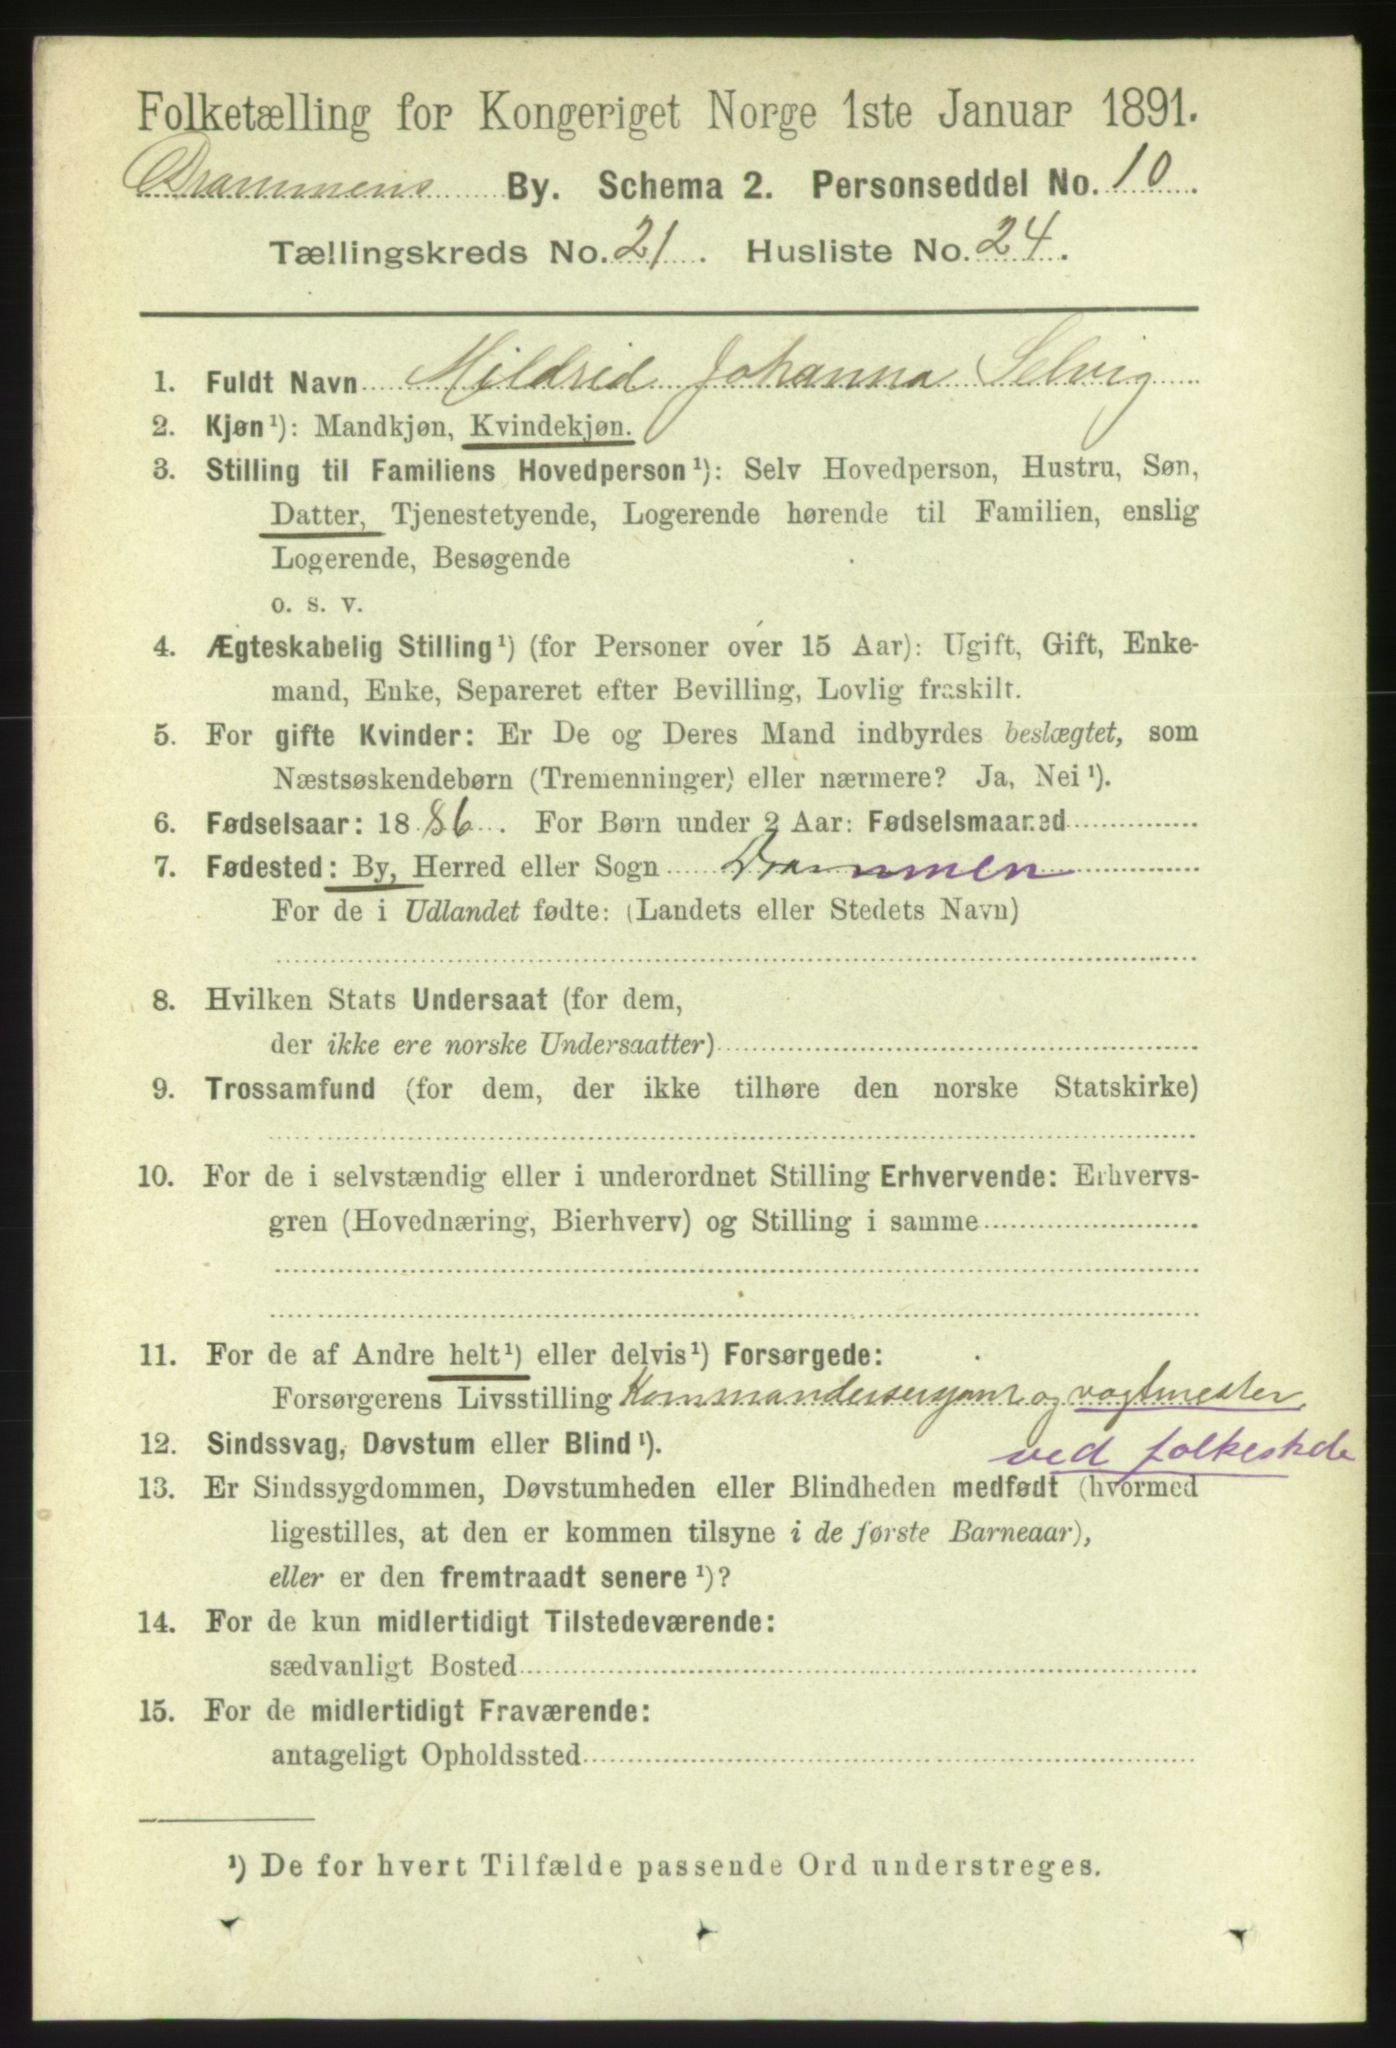 Folketælling for Kongeriget Norge 1ste Januar 1891.
Drammens By. Schema 2. Personseddel No. 10.
Tællingskreds No. 21. Husliste No. 24.
1. Fuldt Navn Mildrid Johanna Selvig
2. Kjøn¹): Mandkjøn, Kvindekjøn.
3. Stilling til Familiens Hovedperson¹): Selv Hovedperson, Hustru, Søn,
Datter, Tjenestetyende, Logerende hørende til Familien, enslig
Logerende, Besøgende
o. s. v.
4. Ægteskabelig Stilling¹) (for Personer over 15 Aar): Ugift, Gift, Enke-
mand, Enke, Separeret efter Bevilling, Lovlig fraskilt.
5. For gifte Kvinder: Er De og Deres Mand indbyrdes beslægtet, som
Næstsøskendebørn (Tremenninger) eller nærmere? Ja, Nei¹).
6. Fødselsaar: 1886. For Børn under 2 Aar: Fødselsmaaned
7. Fødested: By, Herred eller Sogn Drammen
For de i Udlandet fødte: (Landets eller Stedets Navn)
8. Hvilken Stats Undersaat (for dem,
der ikke ere norske Undersaatter)
9. Trossamfund (for dem, der ikke tilhøre den norske Statskirke)
10. For de i selvstændig eller i underordnet Stilling Erhvervende: Erhvervs-
gren (Hovednæring, Bierhverv) og Stilling i samme
11. For de af Andre helt¹) eller delvis¹) Forsørgede:
Forsørgerens Livsstilling Kommandersersjant og vagtmester
ved folkeskole
12. Sindssvag, Døvstum eller Blind¹).
13. Er Sindssygdommen, Døvstumheden eller Blindheden medfødt (hvormed
ligestilles, at den er kommen tilsyne i de første Barneaar),
eller er den fremtraadt senere¹)?
14. For de kun midlertidigt Tilstedeværende:
sædvanligt Bosted
15. For de midlertidigt Fraværende:
antageligt Opholdssted
¹) De for hvert Tilfælde passende Ord understreges.